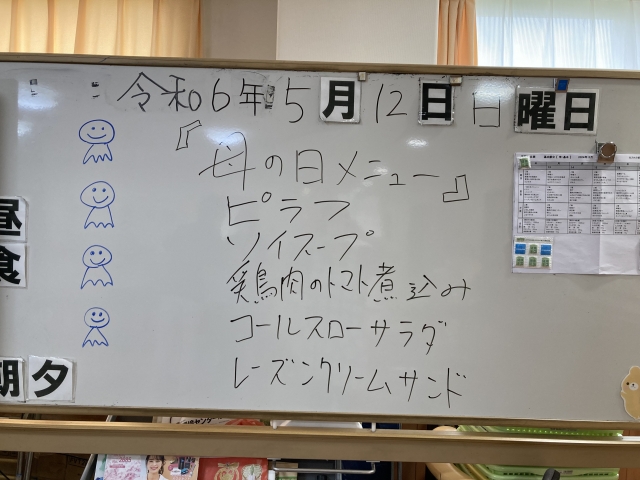 令和6年5月12日日曜日
『母の日メニュー』
ピラフ
ソイスープ
鶏肉のトマト煮込み
コールスローサラダ
レーズンクリームサンド
昼
食
朝夕